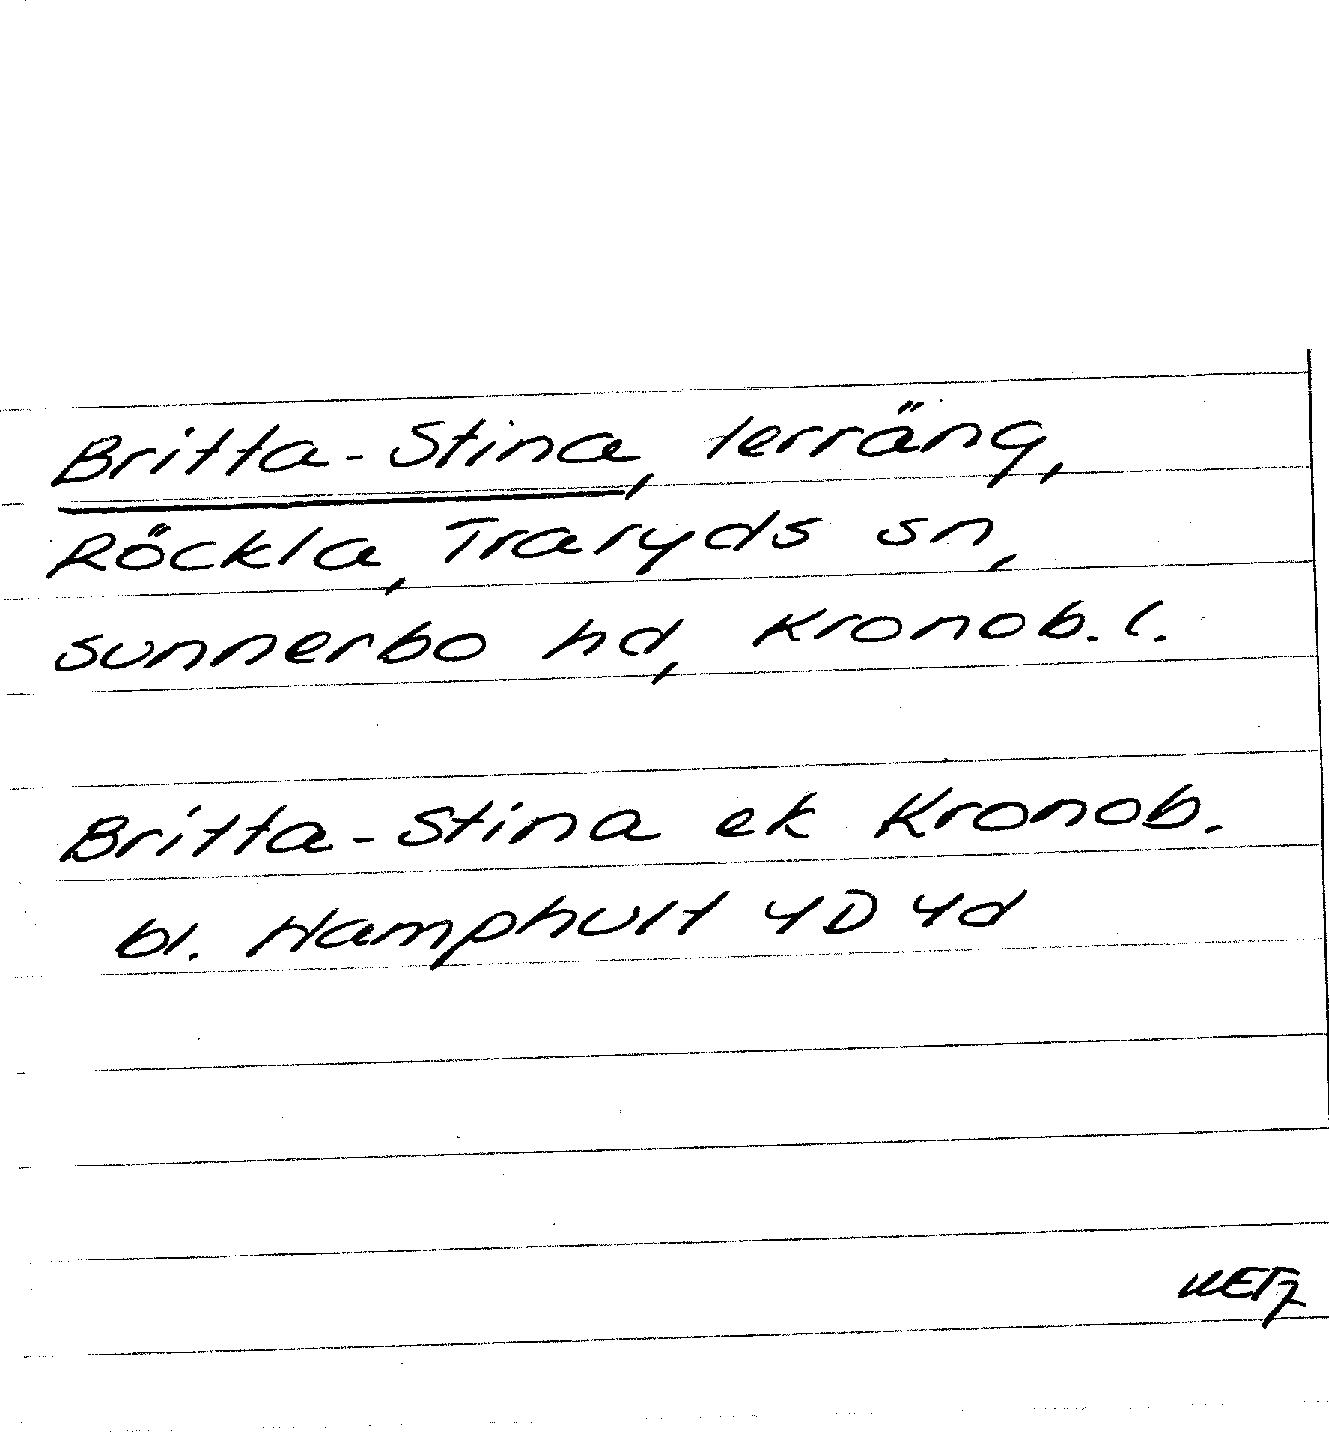 Britta-Stina, terräng,
Röckla, Traryds sn,
sunnerbo hd, Kronob. l.
Britta-Stina ek Kronob.
bl. Hamphult 4D 4d